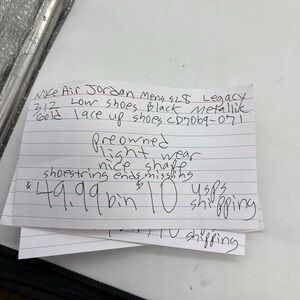 Nike Air Jordan Mens sz8 Legacy
312 Low shoes Black Metallik
Gold lace up shoes CD7069-071
preowned
light wear
nice shape
shoestring ends missing
$49.99 bin $10 usps
shipping
shipping